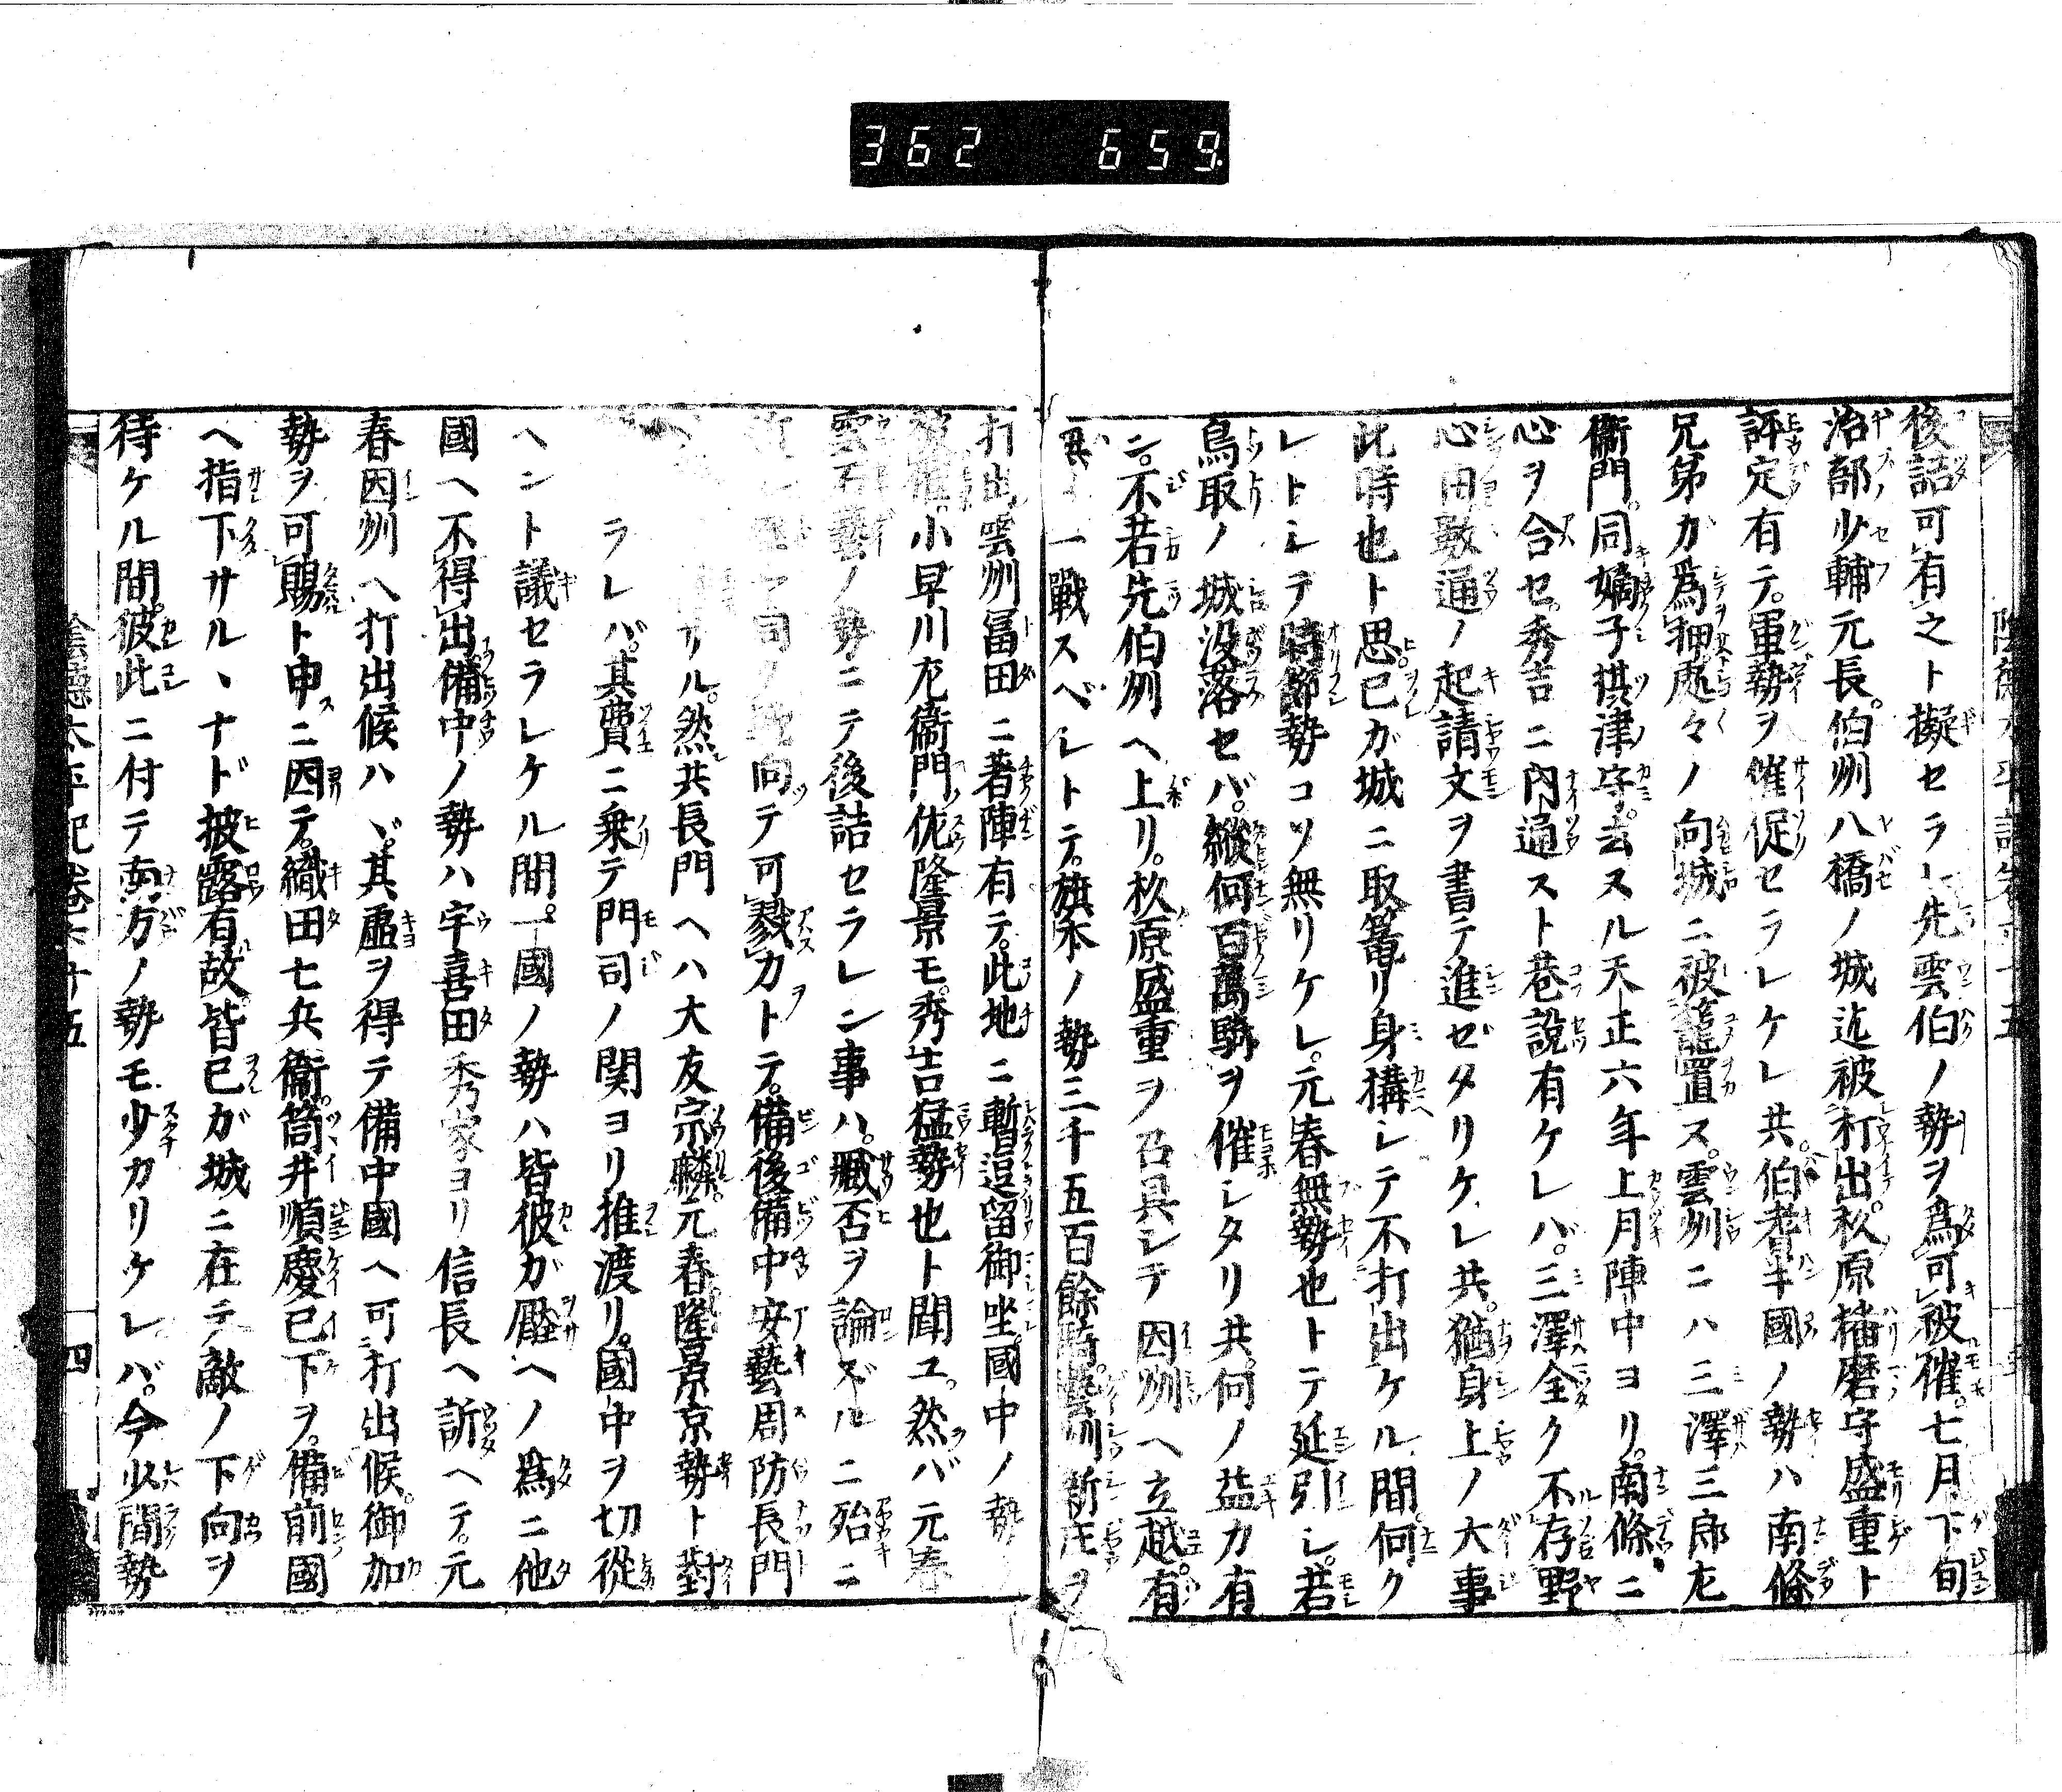 362 659
後詰可有之ト擬セラレ先雲伯ノ勢ヲ為可被催七月下旬
治部少輔元長。伯州八橋ノ城迄被打出。杦原播磨守盛重ト
評定有テ。軍勢ヲ催促セラレケレ共。伯耆半國ノ勢ハ南條
兄弟カ為押処々ノ向城ニ被籠置ス。雲州ニハ三澤三郎左
衞門。同嫡子摂津守。去スル天正六年上月陣中ヨリ。南條ニ
心ヲ合セ。秀吉ニ内通スト巷説有ケレバ。三澤全ク不存野
心由數通ノ起請文ヲ書テ進ゼタリケレ共。猶身上ノ大事
此時也ト思已ガ城ニ取篭リ身構レテ不打出ケル間。何ク
レトレテ時節勢コソ無リケレ。元春無勢也トテ延引レ。若
鳥取ノ城没落セバ。縱何百萬騎ヲ催レタリ共。何ノ益カ有
ン。不若先伯州ヘ上リ。杦原盛重ヲ召具レテ因州ヘ立越。有
無ノ一戰スベレトテ。旗本ノ勢三千五百餘騎。藝州新庄ヲ
打出雲州冨田ニ著陣有テ。此地ニ暫逗留御坐。國中ノ勢
小早川左衞門佐隆景モ。秀吉猛勢也ト聞ユ。然バ元春
雲石藝ノ勢ニテ後詰セラレン事ハ。臧否ヲ論ズルニ殆ニ
向テ可戮力トテ。備後備中安藝周防長門
リル。然共長門ヘハ大友宗麟。元春隆景京勢ト對
ラレバ。其費ニ乗テ門司ノ関ヨリ推渡リ。國中ヲ切從
ヘント議セラレケル間。一國ノ勢ハ皆彼ガ壓ヘノ為ニ他
國ヘ不得出備中ノ勢ハ宇喜田秀家ヨリ信長ヘ訴ヘテ。元
春因州ヘ打出候ハヾ。其虚ヲ得テ備中國ヘ可打出候。御加
勢ヲ可賜ト申ニ因テ。織田七兵衞。筒井順慶已下ヲ。備前國
ヘ指下サルヽナド披露有故。皆已ガ城ニ在テ敵ノ下向ヲ
待ケル間。彼此ニ付テ南方ノ勢モ少カリケレバ。今少間勢
陰徳太平記卷六十五 四